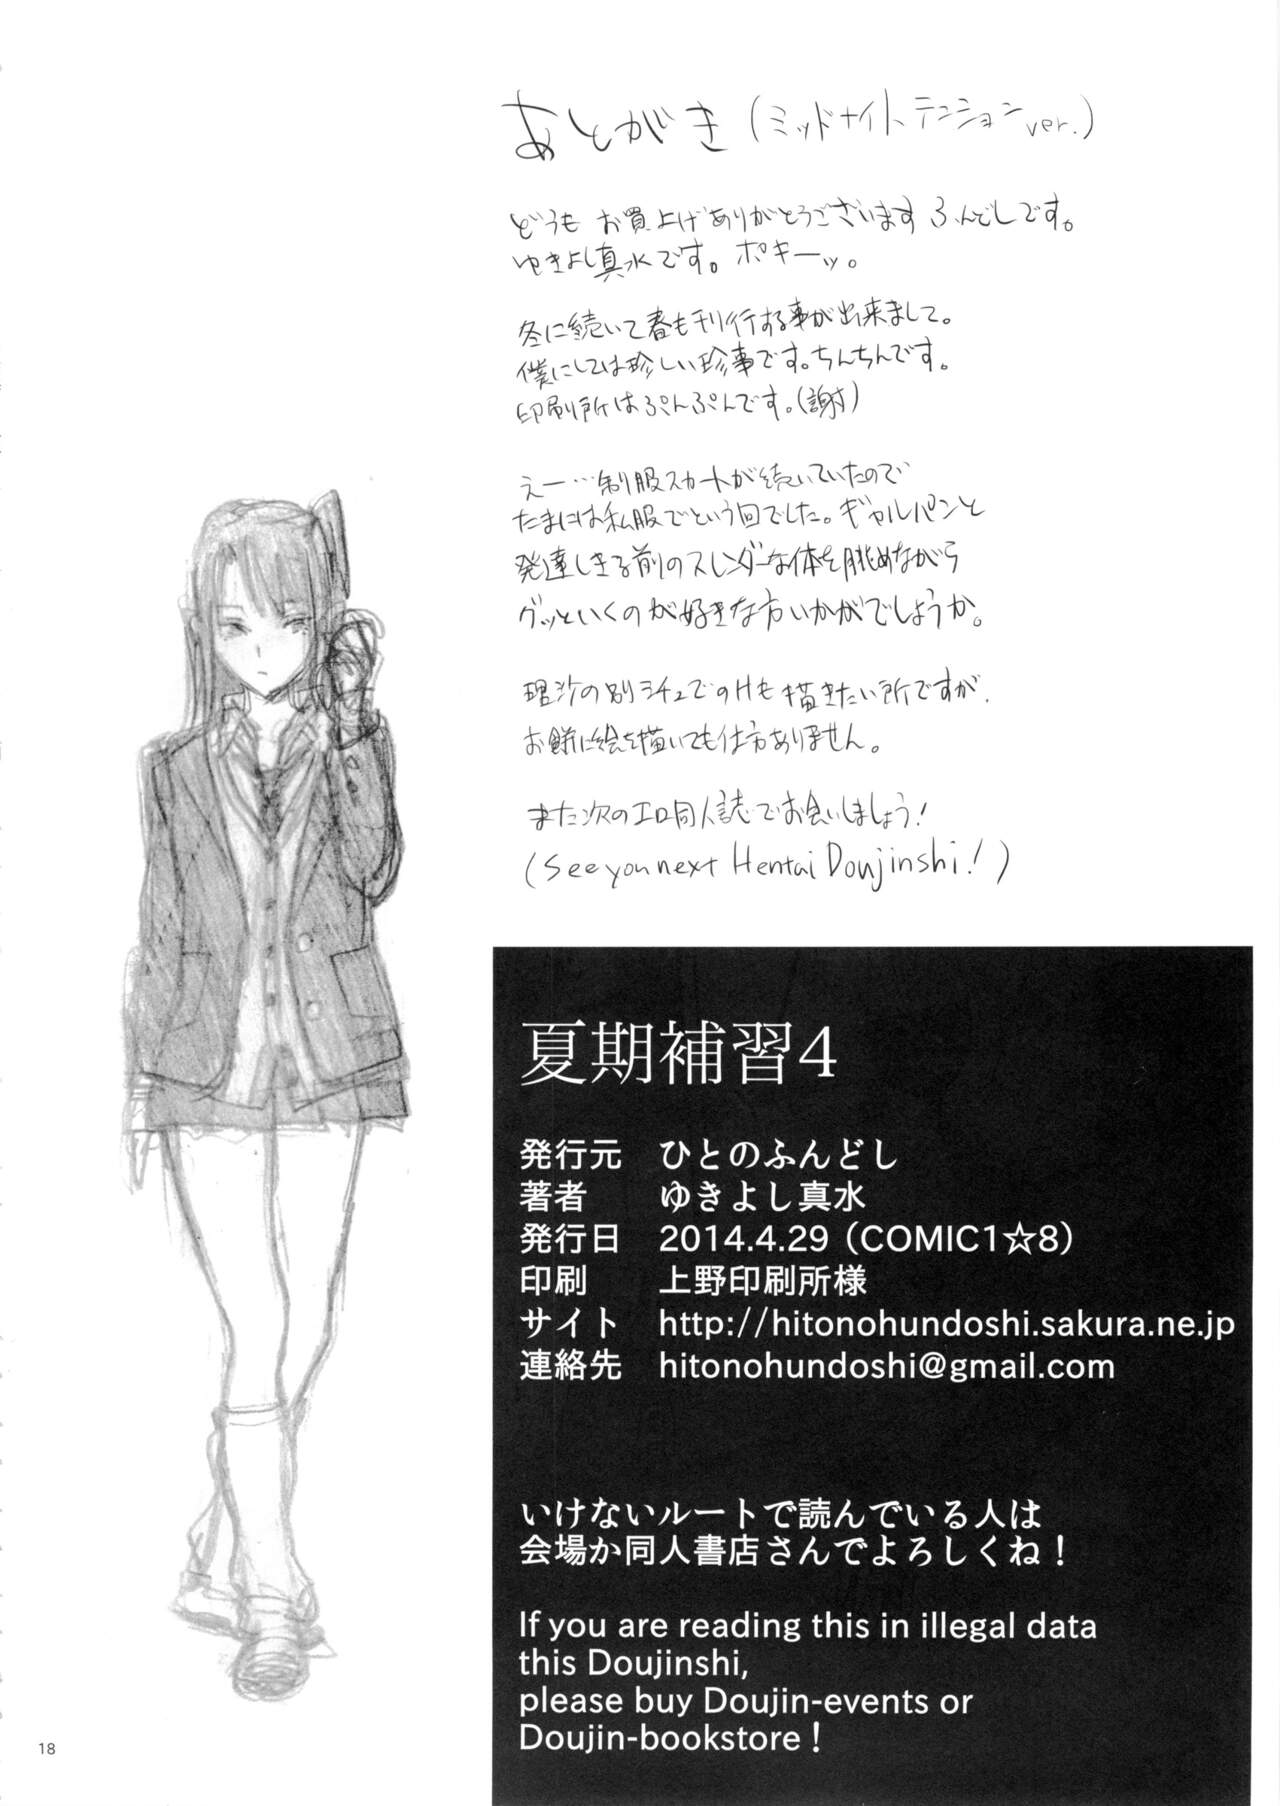 あとがき（ミッドナイトテンションver.）
どうも お買上げありがとうございます ふんどしです。
ゆきよし真水です。ポキーッ。
冬に続いて春も刊行する事が出来まして。
僕にしては珍しい珍事です。ちんちんです。
印刷所はぷんぷんです。（謝）
えー…制服スカートが続いていたので
たまには私服でという回でした。ギャルパンと
発達しきる前のスレンダーな体を眺めながら
グッといくのが好きな方いかがでしょうか。
理沙の別シチュでのHも描きたい所ですが、
お餅に絵を描いても仕方ありません。
また次のエロ同人誌でお会いしましょう！
（See you next Hentai Doujinshi!）
夏期補習4
発行元 ひとのふんどし
著者 ゆきよし真水
発行日 2014.4.29（COMIC1☆8）
印刷 上野印刷所様
サイト http://hitonohundoshi.sakura.ne.jp
連絡先 hitonohundoshi@gmail.com
いけないルートで読んでいる人は
会場か同人書店さんでよろしくね！
If you are reading this in illegal data
this Doujinshi,
please buy Doujin-events or
Doujin-bookstore！
18